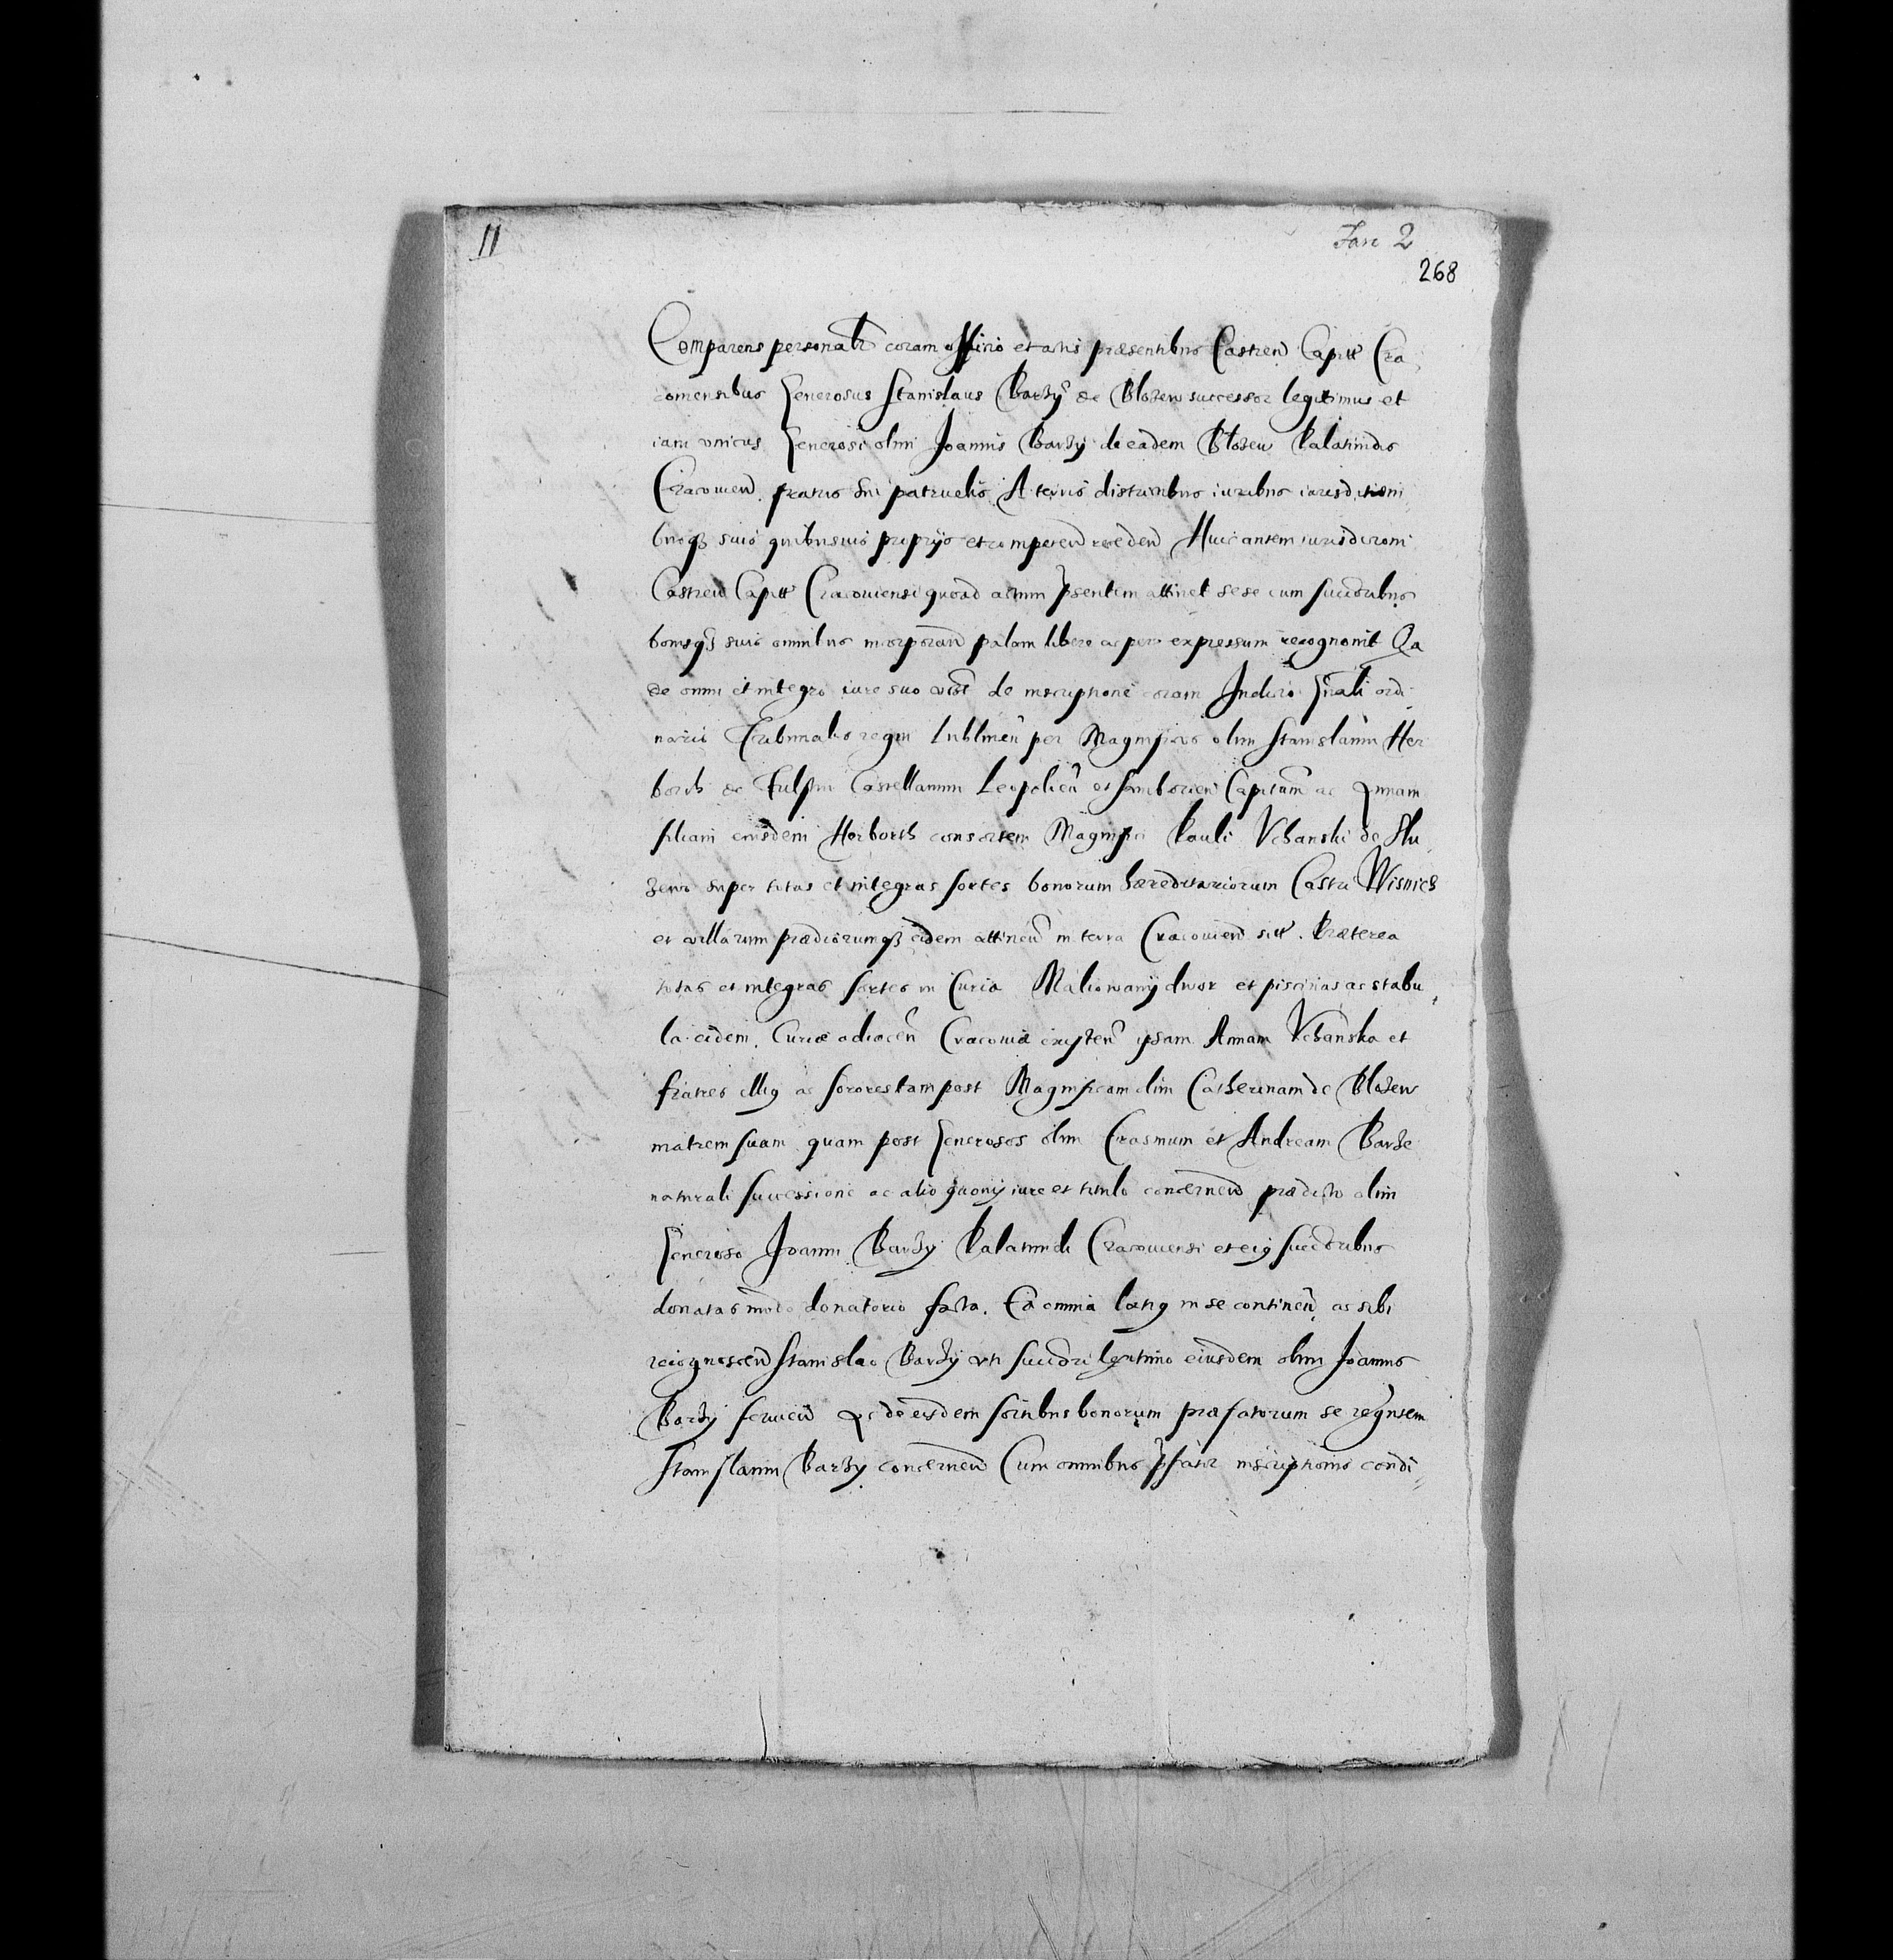 11
Fasc 2
268
Comparens personalr coram officio et actis præsentibus Castren Capit Cra
couiensibus Generosus Stanislaus Barzy de Blozew successor legitimus et
iam vnicus Generosi olim Joannis Barzy de eadem Blozew Palatinidis
Cracouien fratris sui patruelis A terris districtibus iuribus iurisdictioni
busq suis quibusuis proprijs et competen receden Huic autem iurisdictioni
Castren Capit Cracouiensi quoad actum pntem attinet sese cum succoribus
bonisq suis omnibus incorporan palam libere ac per expressum recognouit Qa
de omni et integro iure suo vtst de inscriptione coram Judicio Gnali ordi
nario Tribunalis regni Lublinen per Magnificos olim Stanislaum Her
borth de Fulstin Castellanum Leopolien et Samborien Capitam ac Annam
filiam eiusdem Herborth consortem Magnifici Pauli Vchanski de Slu
zewo super totas et integras sortes bonorum hæreditariorum Castri Wisnicz
et villarum prædiorumq eidem attinen in terra Cracouien sitt. Præterea
totas et integras sortes in Curia Maliowany dwor et piscinas ac stabu
la eidem Curiæ adiacen Cracouiæ existen ipsam Annam Vchanska et
fratres illiq ac sorores tam post Magnificam olim Catherinam de Blozew
matrem suam quam post Generosos olim Erasmum et Andream Barze
naturali successione ac alio quouis iure et titulo concernen prædicto olim
Generoso Joanni Barzy Palatinidi Cracouiensi et eiq succoribus
donatas modo donatorio facta. Ea omnia latiq in se continen ac sibi
recognoscen Stanislao Barzy vti succori legitimo eiusdem olim Joannis
Barzy seruien Ac de eisdem sortibus bonorum præfatorum se recognscem
Stanislaum Barzy concernen Cum omnibus pfatæ inscriptionis condi